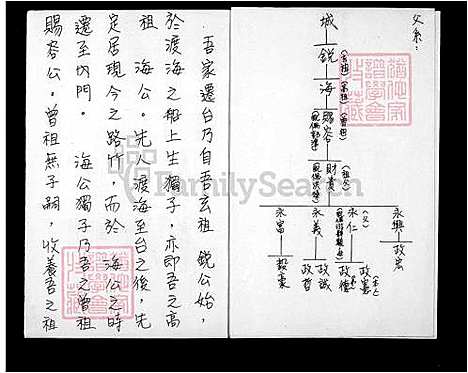 父系：
城
銳
(玄祖)
海
(高祖)
賜容
(曾祖)
財貴
(祖父)
永興
政宏
永仁
(父)
政憲
政德
永義
政誠
政哲
永富
毅豪
吾家遷台乃自吾玄祖 銳公始，
於渡海之船上生獨子，亦即吾之高
祖 海公。先人渡海至台之後，先
定居現今之路竹，而於 海公之時
遷至內門。 海公獨子乃吾之曾祖
賜容公。曾祖無子嗣，收養吾之祖
FamilySearch